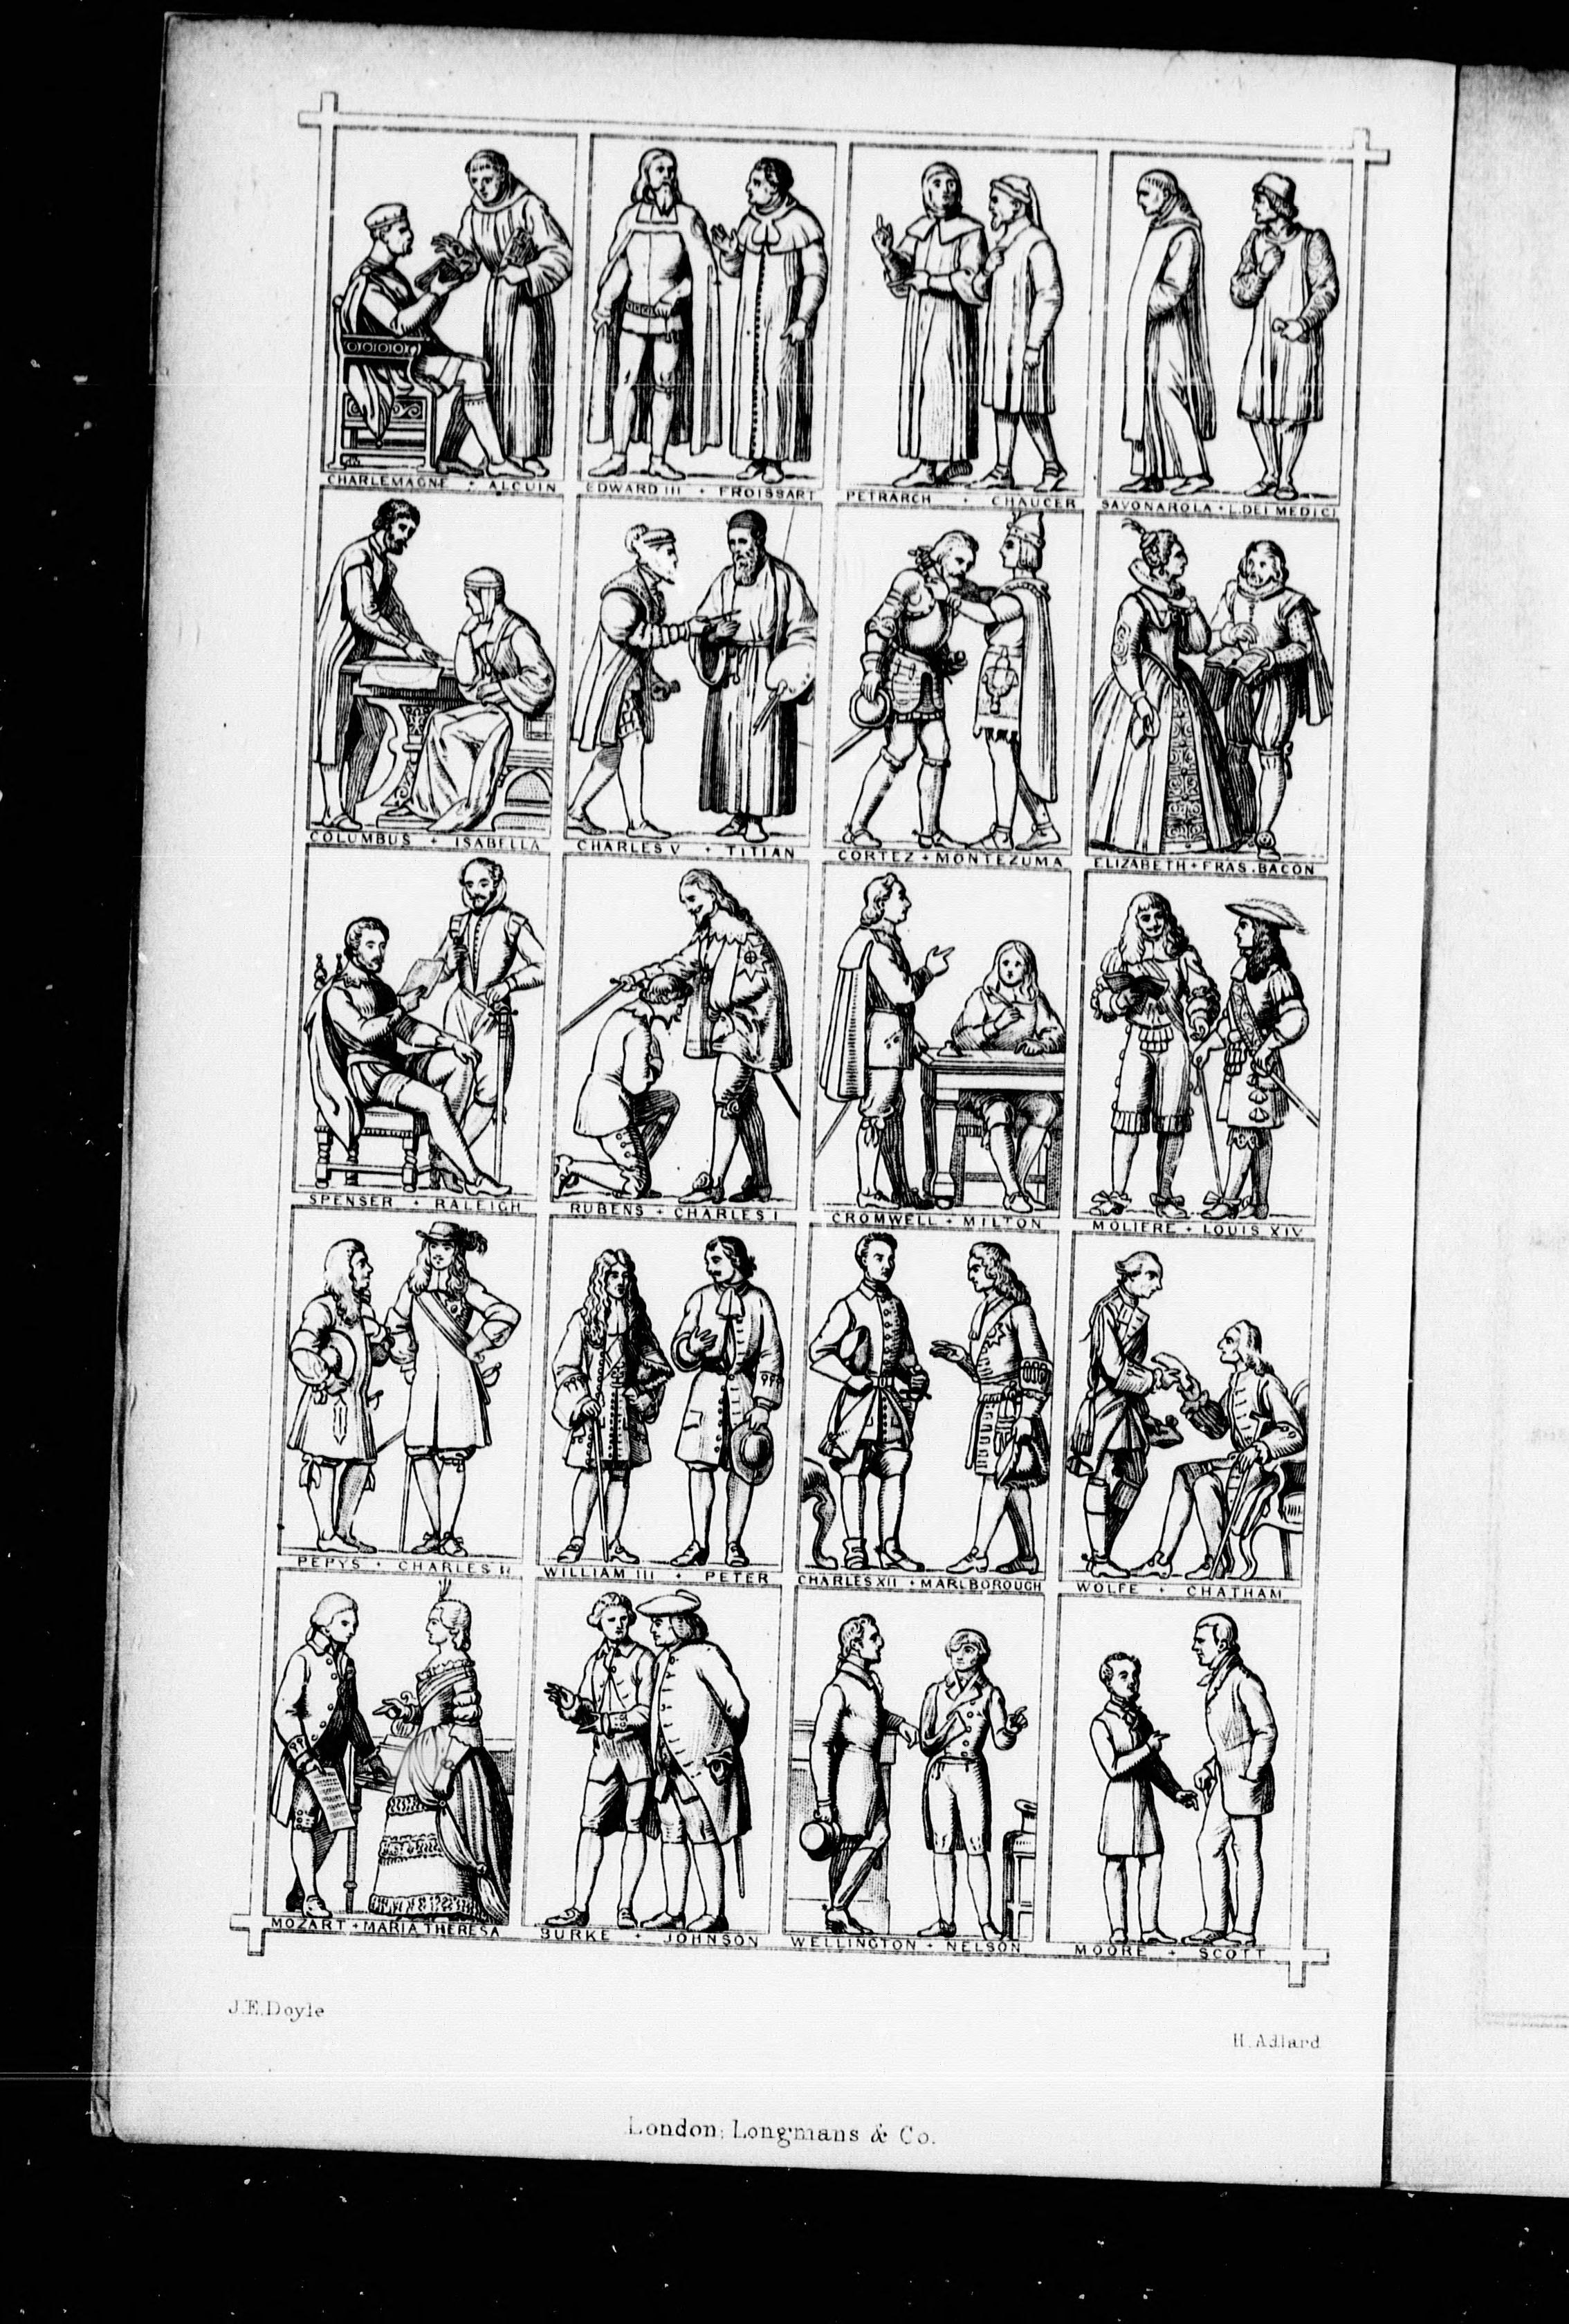 CHARLEMAGNE + ALCUIN
EDWARD III + FROISSART
PETRARCH + CHAUCER
SAVONAROLA + L.DEI MEDICI
COLUMBUS + ISABELLA
CHARLES V + TITIAN
CORTEZ + MONTEZUMA
ELIZABETH + FRAS. BACON
SPENSER + RALEIGH
RUBENS + CHARLES I
CROMWELL + MILTON
MOLIERE + LOUIS XIV
PEPYS + CHARLES II
WILLIAM III + PETER
CHARLES XII + MARLBOROUGH
WOLFE + CHATHAM
MOZART + MARIA THERESA
BURKE + JOHNSON
WELLINGTON + NELSON
MOORE + SCOTT
J.E.Doyle
H.Adlard
London: Longmans & Co.